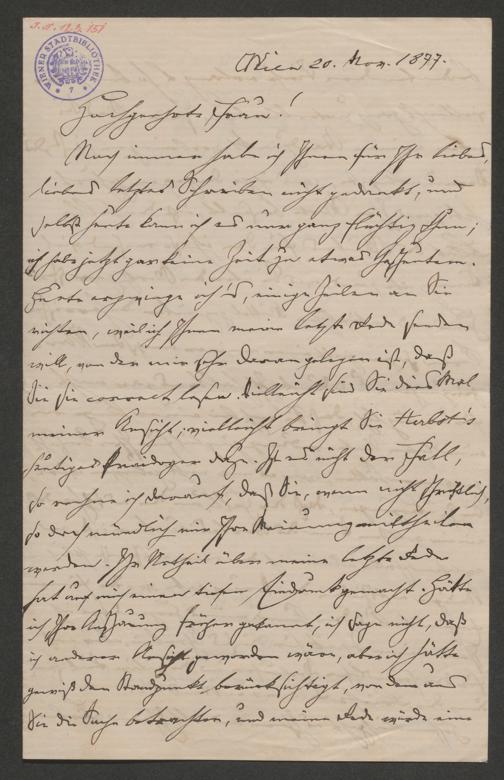 J. N. 12.5.151
WIENER STADTBIBLIOTHEK
Wien 20. Nov. 1877.
Hochgeehrte Frau!
Noch immer habe ich Ihnen für Ihr liebes,
liebes letztes Schreiben nicht gedankt, und
selbst heute kann ich es nur ganz flüchtig thun;
ich habe jetzt gar keine Zeit zu etwas Gescheutem.
Heute erzwinge ich's, einige Zeilen an Sie
richten, weil ich Ihnen meine letzte Rede senden
will, von der mir sehr daran gelegen ist, daß
Sie sie correct lesen. Vielleicht sind Sie dies Mal
meiner Ansicht; vielleicht bringt Sie Herbst's
heutiges dazu. Ist es nicht der Fall,
so rechne ich darauf, daß Sie, wenn nicht schriftlich,
so doch mündlich mir Ihre Meinung mittheilen
werden. Ihr Urtheil über meine letzte Rede
hat auf mich einen tiefen Eindruck gemacht. Hätte
ich Ihre Anschauung früher gekannt, ich sage nicht, daß
ich anderer Ansicht geworden wäre, aber ich hätte
gewiß den Standpunkt berücksichtigt, von dem aus
Sie die Sache betrachten, und meine Rede würde eine